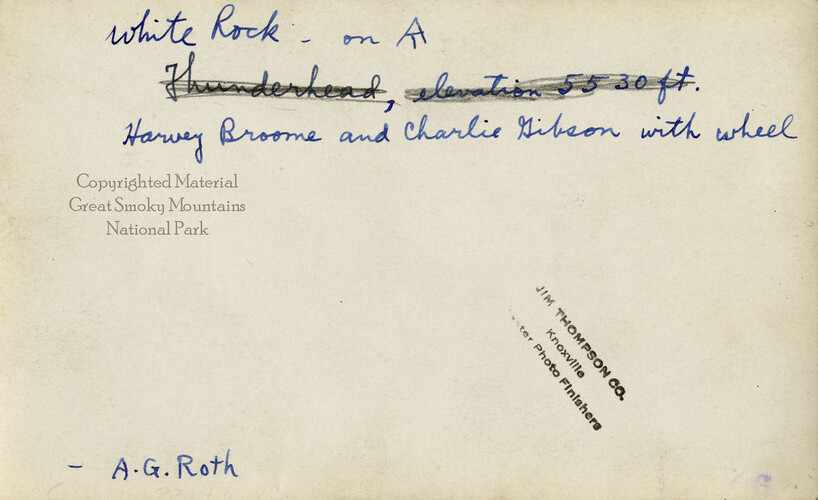 White Rock - on AT
Thunderhead, elevation 5530 ft.
Harvey Broome and Charlie Gibson with wheel
Copyrighted Material
Great Smoky Mountains
National Park
JIM THOMPSON CO.
Knoxville
Photo Finishers
- A.G. Roth